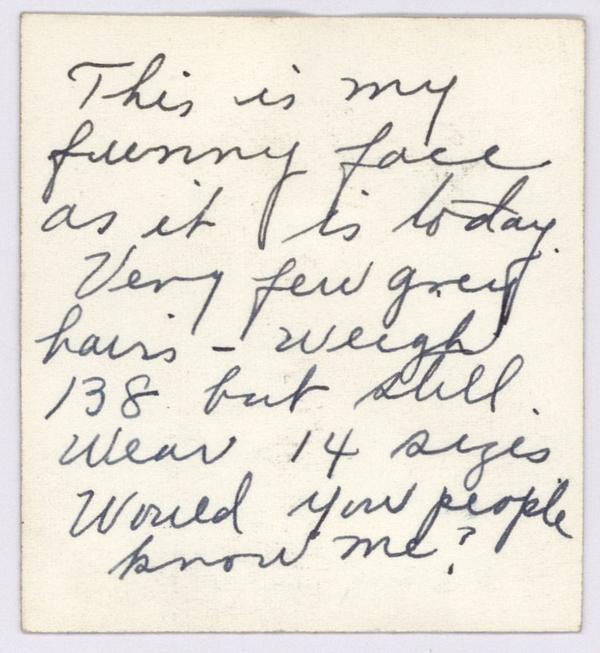 This is my
funny face
as it is today.
Very few grey
hairs – weigh
138 but still
Wear 14 sizes
Would you people
know me?